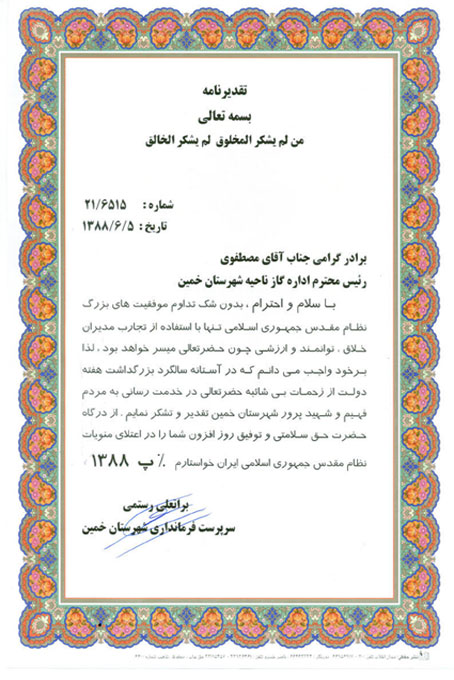 تقدیرنامه
بسمه تعالی
من لم یشکر المخلوق لم یشکر الخالق
شماره : ۲۱/۶۵۱۵
تاریخ : ۱۳۸۸/۶/۵
برادر گرامی جناب آقای مصطفوی
رئیس محترم اداره گاز ناحیه شهرستان خمین
با سلام و احترام ، بدون شک تداوم موفقیت های بزرگ
نظام مقدس جمهوری اسلامی تنها با استفاده از تجارب مدیران
خلاق ، توانمند و ارزشی چون حضرتعالی میسر خواهد بود . لذا
برخود واجب می دانم که در آستانه سالگرد بزرگداشت هفته
دولت از زحمات بی شائبه حضرتعالی در خدمت رسانی به مردم
فهیم و شهید پرور شهرستان خمین تقدیر و تشکر نمایم . از درگاه
حضرت حق سلامتی و توفیق روز افزون شما را در اعتلای منویات
نظام مقدس جمهوری اسلامی ایران خواستارم ٪ پ ۱۳۸۸
براتعلی رستمی
سرپرست فرمانداری شهرستان خمین